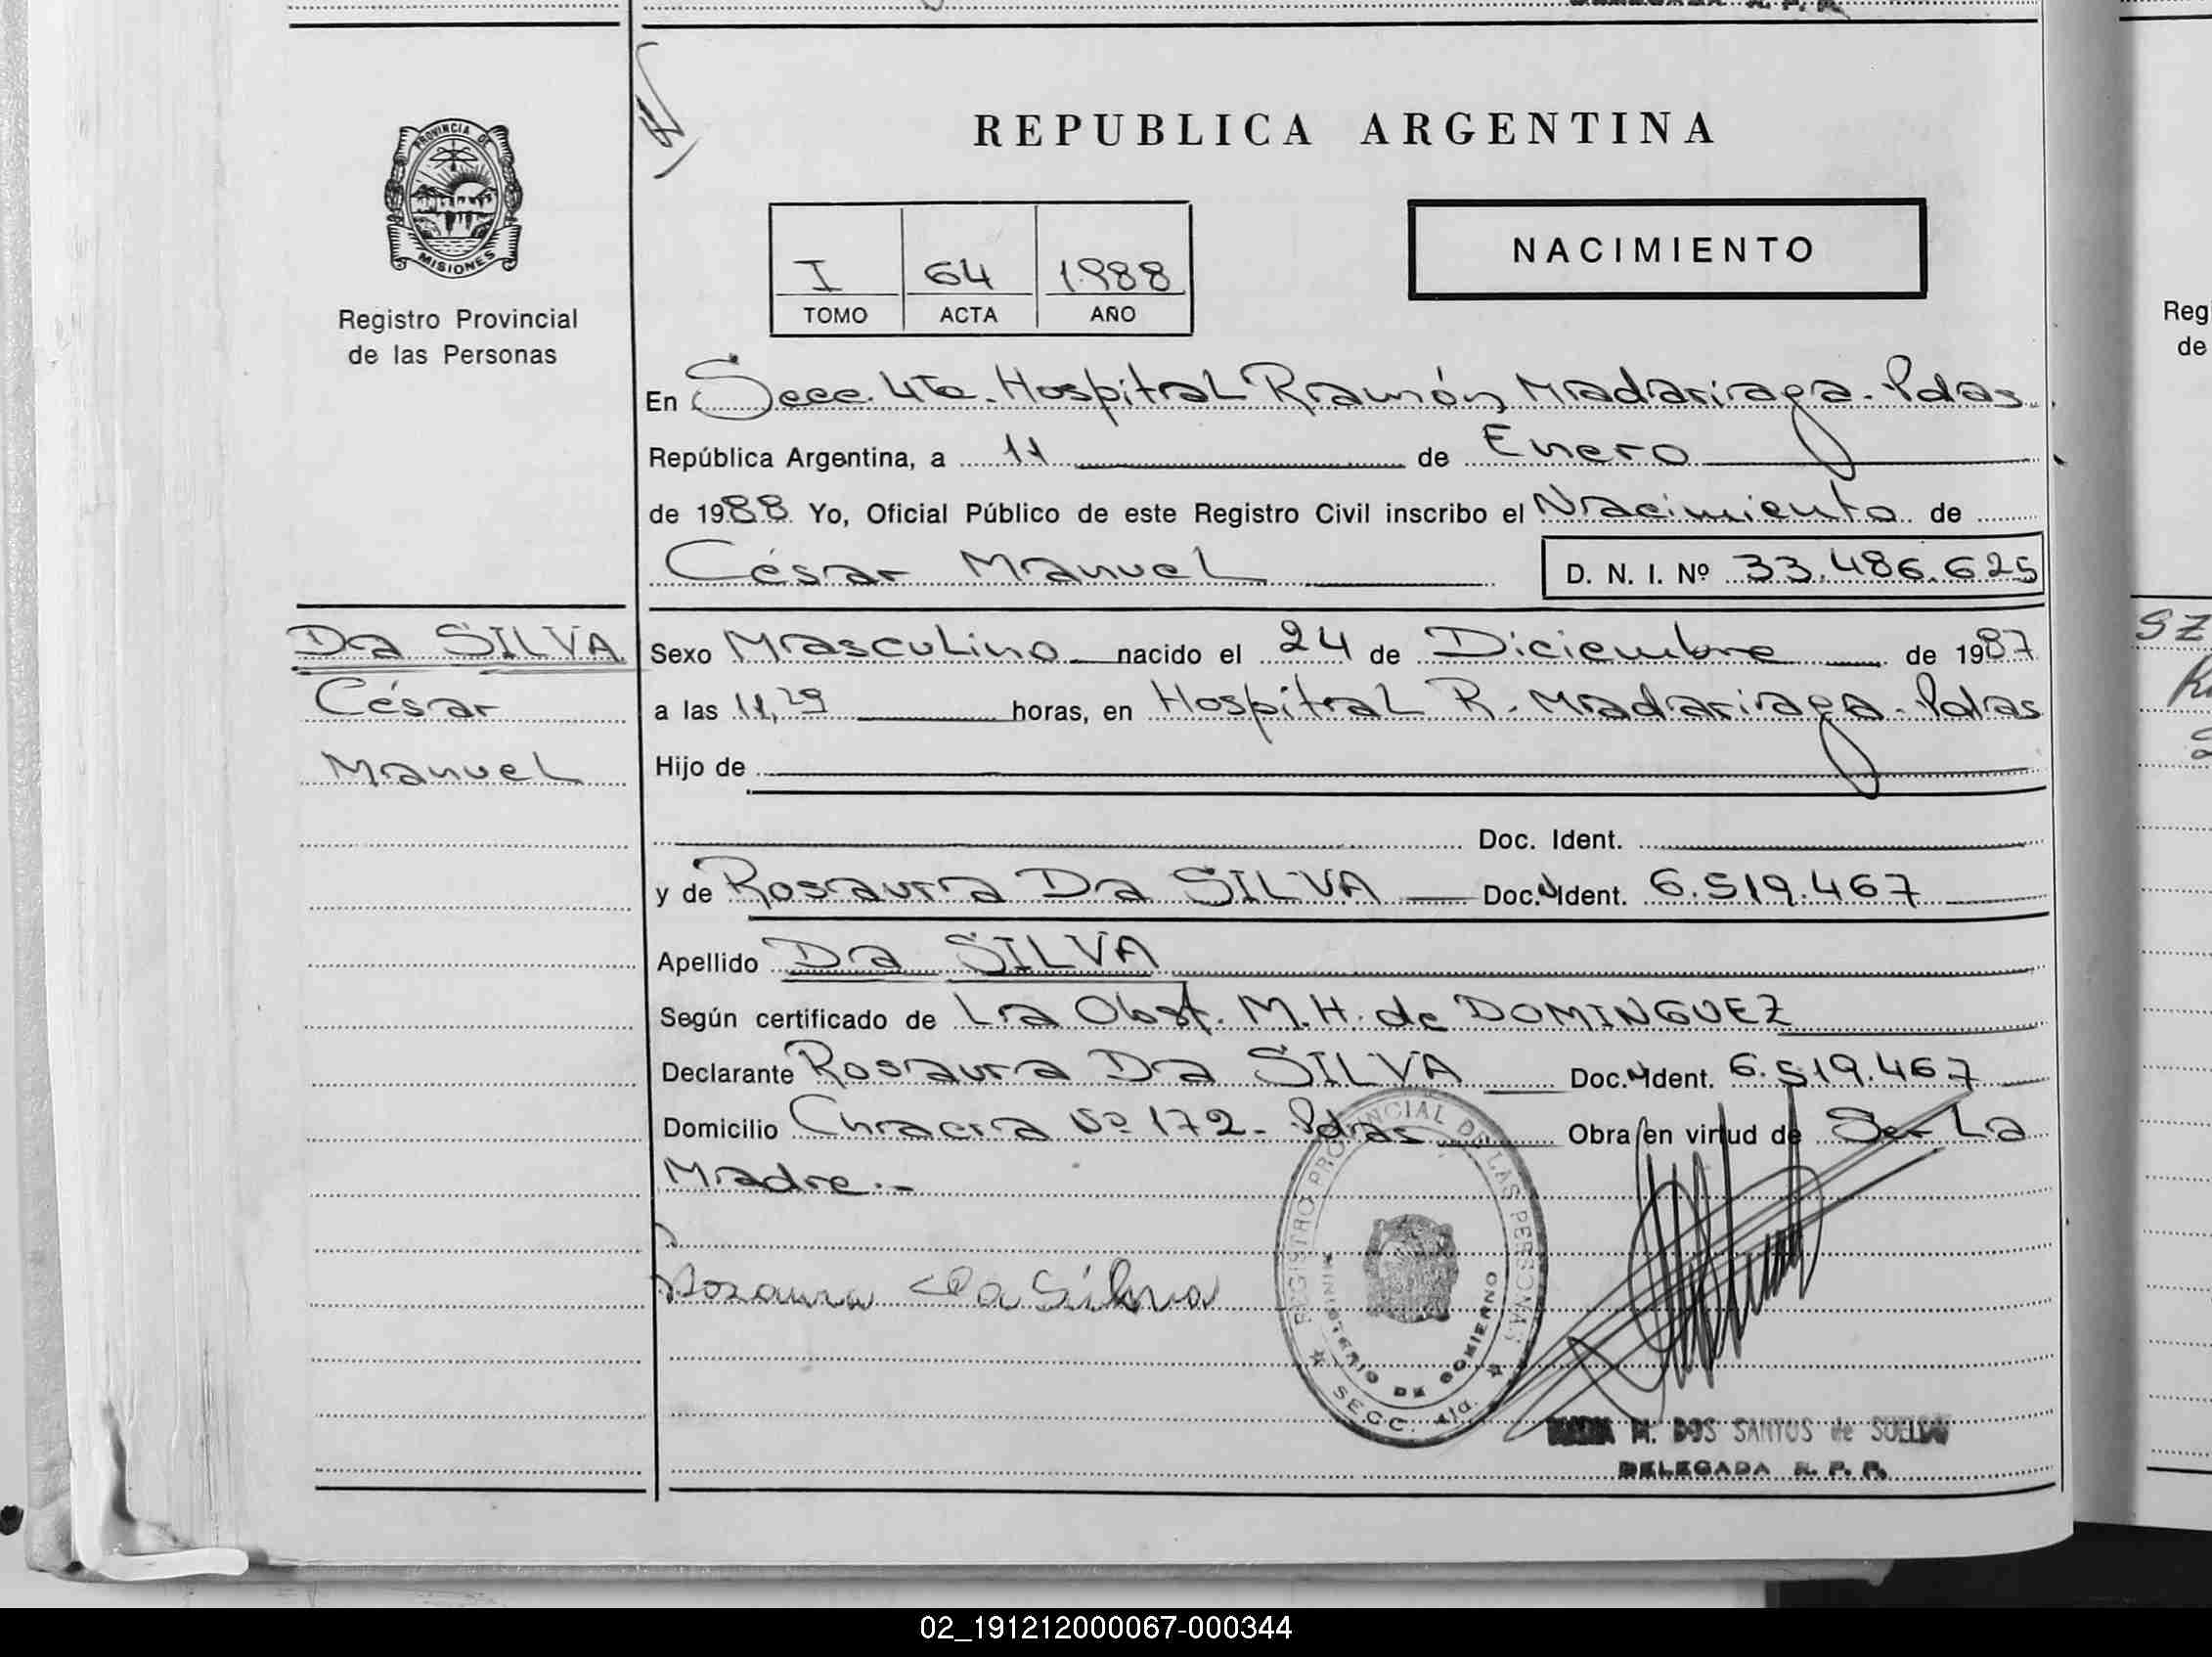 DELEGADA R. P. P.
PROVINCIA DE
MISIONES
Registro Provincial
de las Personas
REPUBLICA ARGENTINA
NACIMIENTO
I 64 1988
TOMO ACTA AÑO
En Secc. 4ta. Hospital Ramón Madariaga - Pdas
República Argentina, a 11 de Enero
de 1988 Yo, Oficial Público de este Registro Civil inscribo el Nacimiento de
César Manuel D. N. I. Nº 33.486.625
Da SILVA
César
Manuel
Sexo Masculino nacido el 24 de Diciembre de 1987
a las 11,29 horas, en Hospital R. Madariaga - Pdas
Hijo de
Doc. Ident.
y de Rosaura Da SILVA Doc. Ident. 6.519.467
Apellido Da SILVA
Según certificado de La Obst. M.H. de DOMINGUEZ
Declarante Rosaura Da SILVA Doc. Ident. 6.519.467
Domicilio Chacra Nº 172 - Pdas Obra en virtud de Ser La
Madre.-
Rosaura Da Silva
REGISTRO PROVINCIAL DE LAS PERSONAS
MINISTERIO DE GOBIERNO
SECC. 4ta.
M. DOS SANTOS de
DELEGADA R. P. P.
Reg
de
SZ
02_191212000067-000344